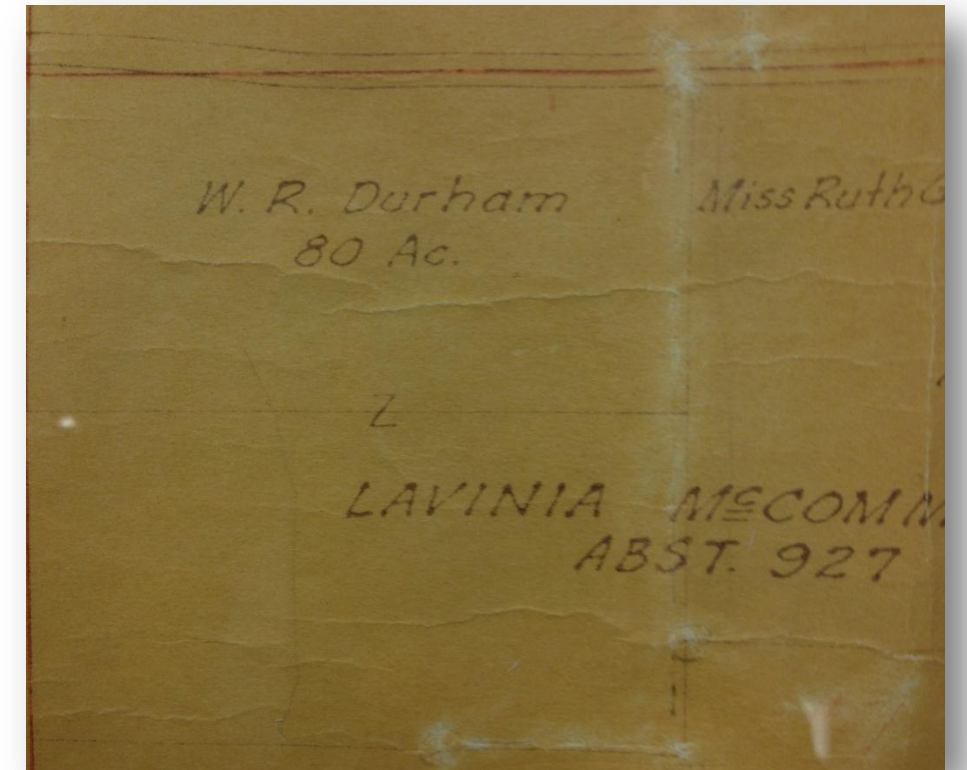 W. R. Durham
80 Ac.
Miss Ruth G
Z
LAVINIA McCOMM
ABST. 927